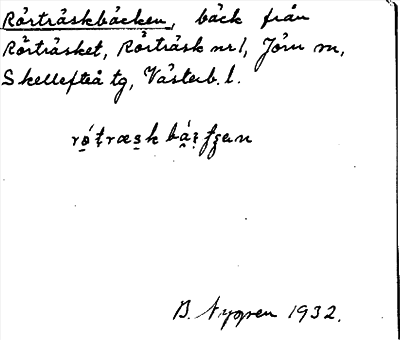 Rörträskbäcken, bäck från
Rörträsket, Rörträsk nr 1, Jörn sn,
Skellefteå tg, Västerb. l.
B. Nygren 1932.